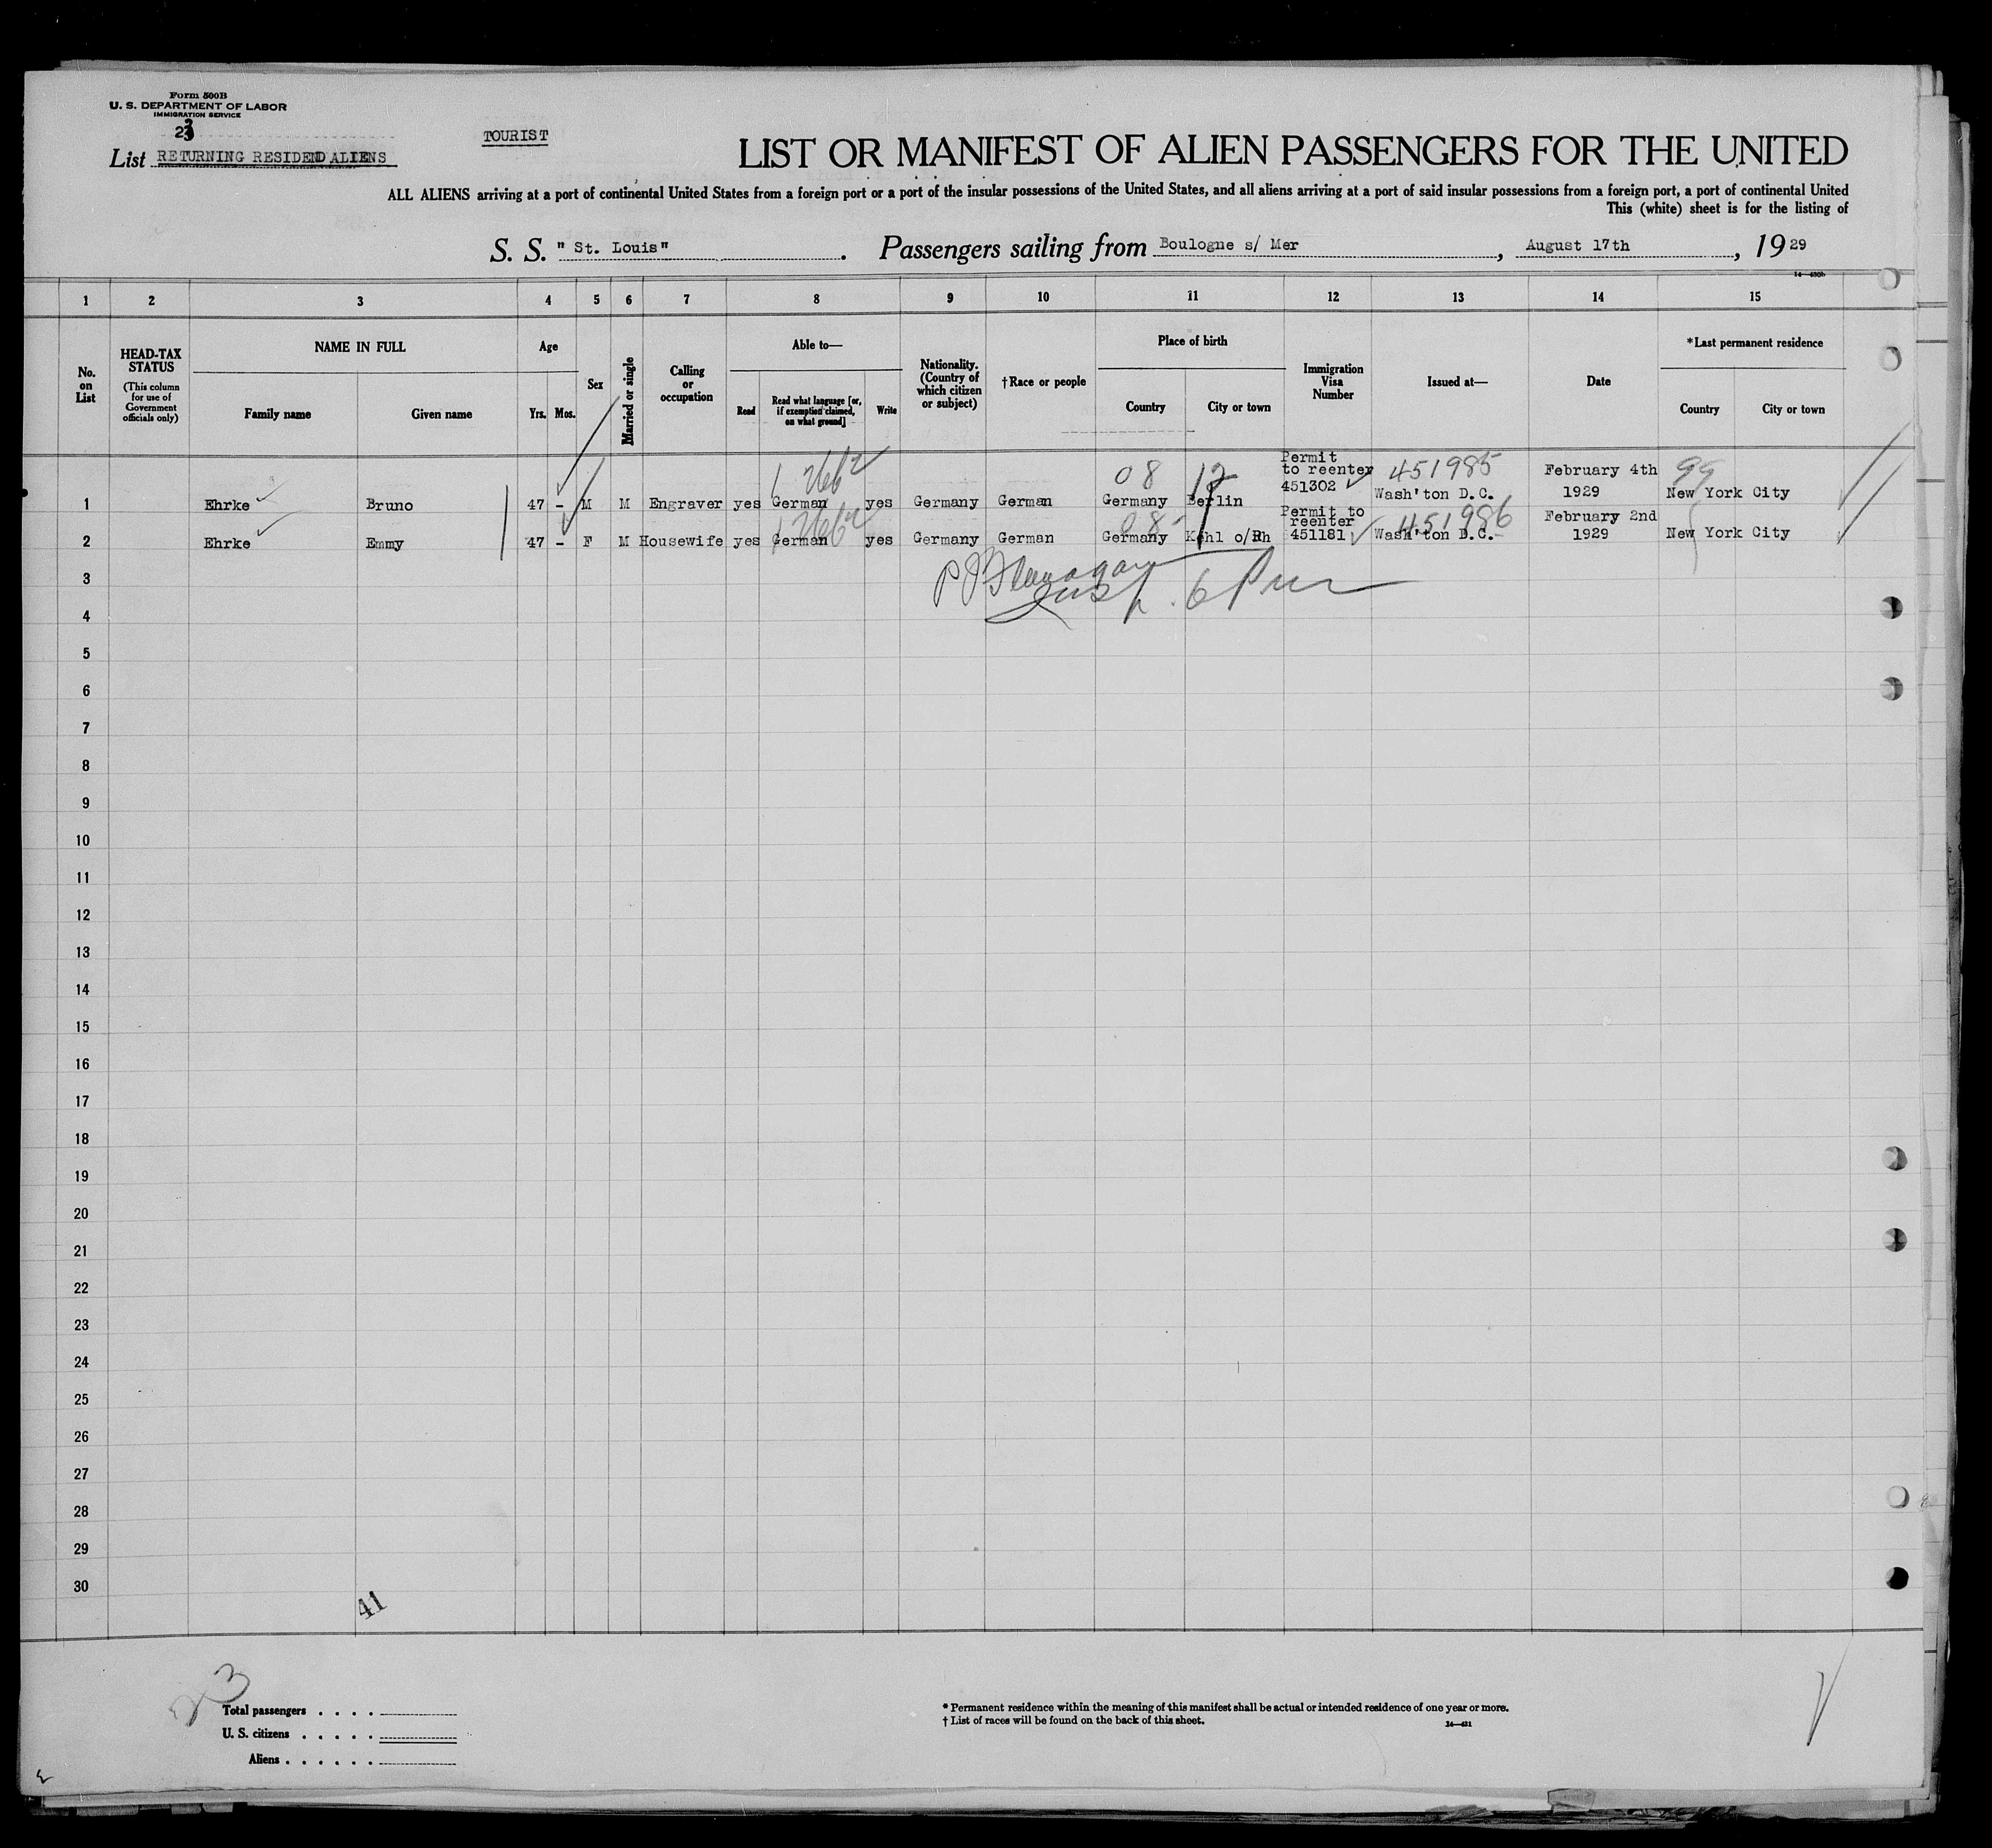 Form 500B
U. S. DEPARTMENT OF LABOR
IMMIGRATION SERVICE
23
List RETURNING RESIDEND ALIENS
TOURIST
LIST OR MANIFEST OF ALIEN PASSENGERS FOR THE UNITED
ALL ALIENS arriving at a port of continental United States from a foreign port or a port of the insular possessions of the United States, and all aliens arriving at a port of said insular possessions from a foreign port, a port of continental United
This (white) sheet is for the listing of
S. S. " St. Louis" . Passengers sailing from Boulogne s/ Mer , August 17th , 19 29
1 2 3 4 5 6 7 8 9 10 11 12 13 14 15
No. on List
HEAD-TAX STATUS (This column for use of Government officials only)
NAME IN FULL
Family name Given name
Age
Yrs. Mos.
Sex
Married or single
Calling or occupation
Able to—
Read Read what language [or, if exemption claimed, on what ground] Write
Nationality. (Country of which citizen or subject)
†Race or people
Place of birth
Country City or town
Immigration Visa Number
Issued at—
Date
*Last permanent residence
Country City or town
08 12 Permit to reenter 451985 February 4th 99
1 Ehrke Bruno 47 - M M Engraver yes German yes Germany German Germany Berlin 451302 Wash'ton D.C. 1929 New York City
08- Permit to reenter 451986 February 2nd
2 Ehrke Emmy 47 - F M Housewife yes German yes Germany German Germany Kehl o/Rh 451181 Wash'ton D.C. 1929 New York City
3
4
5
6
7
8
9
10
11
12
13
14
15
16
17
18
19
20
21
22
23
24
25
26
27
28
29
30
41
23
Total passengers
U. S. citizens
Aliens
* Permanent residence within the meaning of this manifest shall be actual or intended residence of one year or more.
† List of races will be found on the back of this sheet.